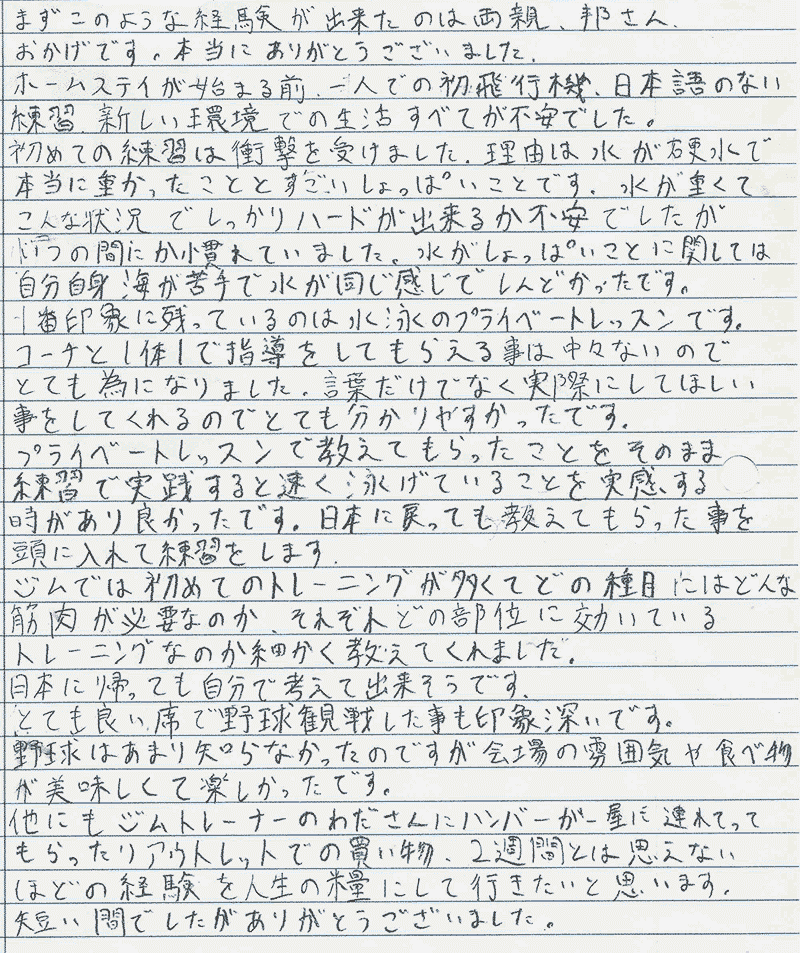 まずこのような経験が出来たのは両親、邦さん、
おかげです。本当にありがとうございました。
ホームステイが始まる前、一人での初飛行機、日本語のない
練習、新しい環境での生活すべてが不安でした。
初めての練習は衝撃を受けました。理由は水が硬水で
本当に重かったこととすごいしょっぱいことです。水が重くて
こんな状況でしっかりハードが出来るか不安でしたが
いつの間にか慣れていました。水がしょっぱいことに関しては
自分自身海が苦手で水が同じ感じでしんどかったです。
1番印象に残っているのは水泳のプライベートレッスンです。
コーチと1体1で指導をしてもらえる事は中々ないので
とても為になりました。言葉だけでなく実際にしてほしい
事をしてくれるのでとても分かりやすかったです。
プライベートレッスンで教えてもらったことをそのまま
練習で実践すると速く泳げていることを実感する
時があり良かったです。日本に戻っても教えてもらった事を
頭に入れて練習をします。
ジムでは初めてのトレーニングが多くてどの種目にはどんな
筋肉が必要なのか、それぞれどの部位に効いている
トレーニングなのか細かく教えてくれました。
日本に帰っても自分で考えて出来そうです。
とても良い席で野球観戦した事も印象深いです。
野球はあまり知らなかったのですが会場の雰囲気や食べ物
が美味しくて楽しかったです。
他にもジムトレーナーのわださんにハンバーガー屋に連れてって
もらったりアウトレットでの買い物、2週間とは思えない
ほどの経験を人生の糧にして行きたいと思います。
短い間でしたがありがとうございました。